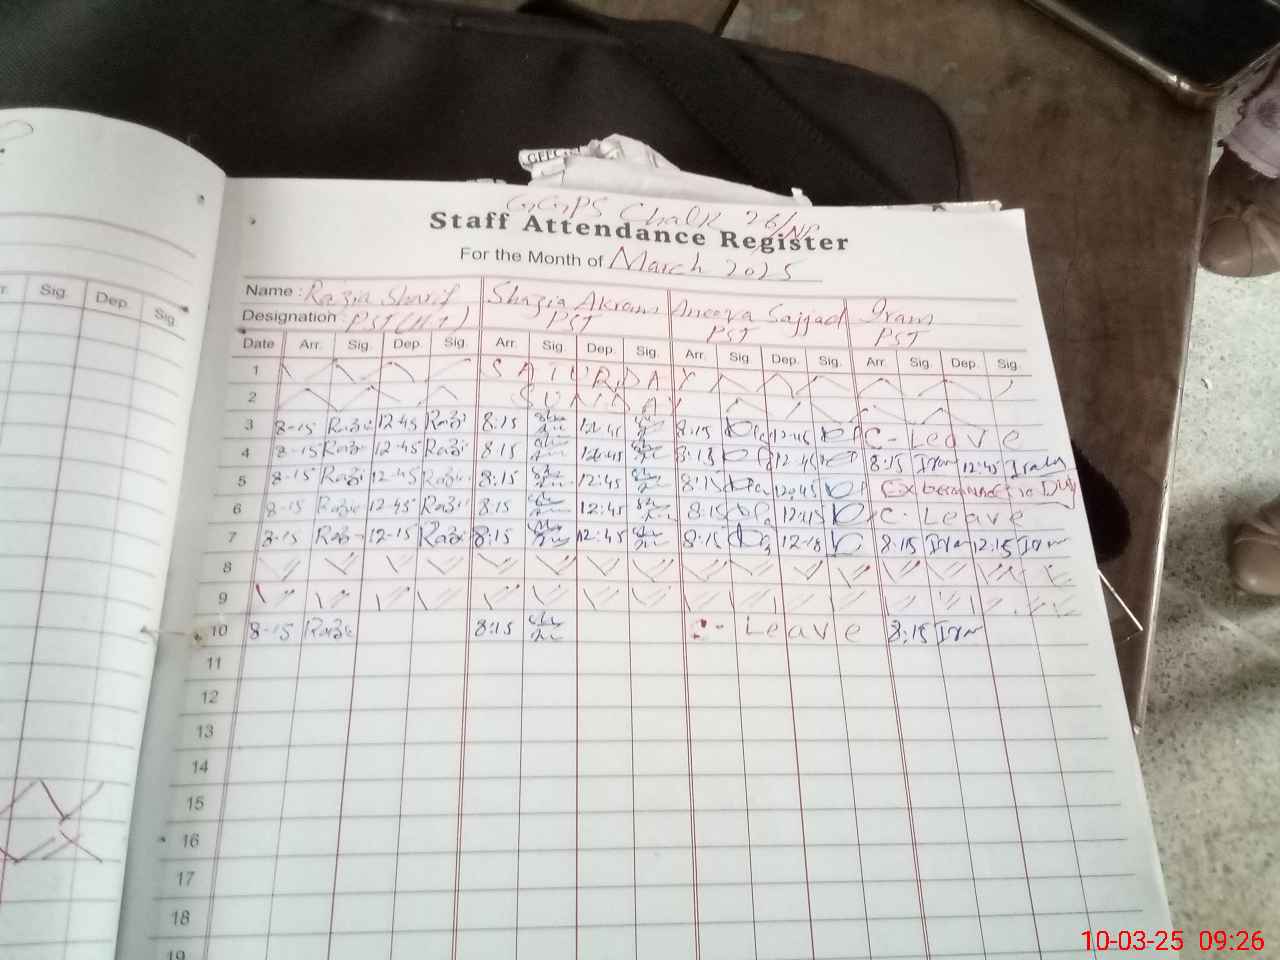 GGPS Chalk 26/NP
Staff Attendance Register
For the Month of March 2025
Name: Razia Sharif Shazia Akram Aneeqa Sajjad Iram
Designation: PST (HT) PST PST PST
Date Arr. Sig. Dep. Sig. Arr. Sig. Dep. Sig. Arr. Sig. Dep. Sig. Arr. Sig. Dep. Sig.
1 SATURDAY
2 SUNDAY
3 8-15 Razi 12-45 Razi 8:15 12:45 8:15 12:45 C- Leave
4 8-15 Razi 12-45 Razi 8:15 12:45 8:15 12:45 8:15 Iram 12:45
5 8-15 Razi 12-45 Razi 8:15 12:45 8:15 12:45 Duty
6 8-15 Razi 12-45 Razi 8:15 12:45 8:15 12:15 C- Leave
7 8-15 Razi 12-15 Razi 8:15 12:45 8:15 12:15 8:15 Iram 12:15 Iram
8
9
10 8-15 Razi 8:15 C- Leave 8:15 Iram
11
12
13
14
15
16
17
18
19
Sig. Dep. Sig.
10-03-25 09:26